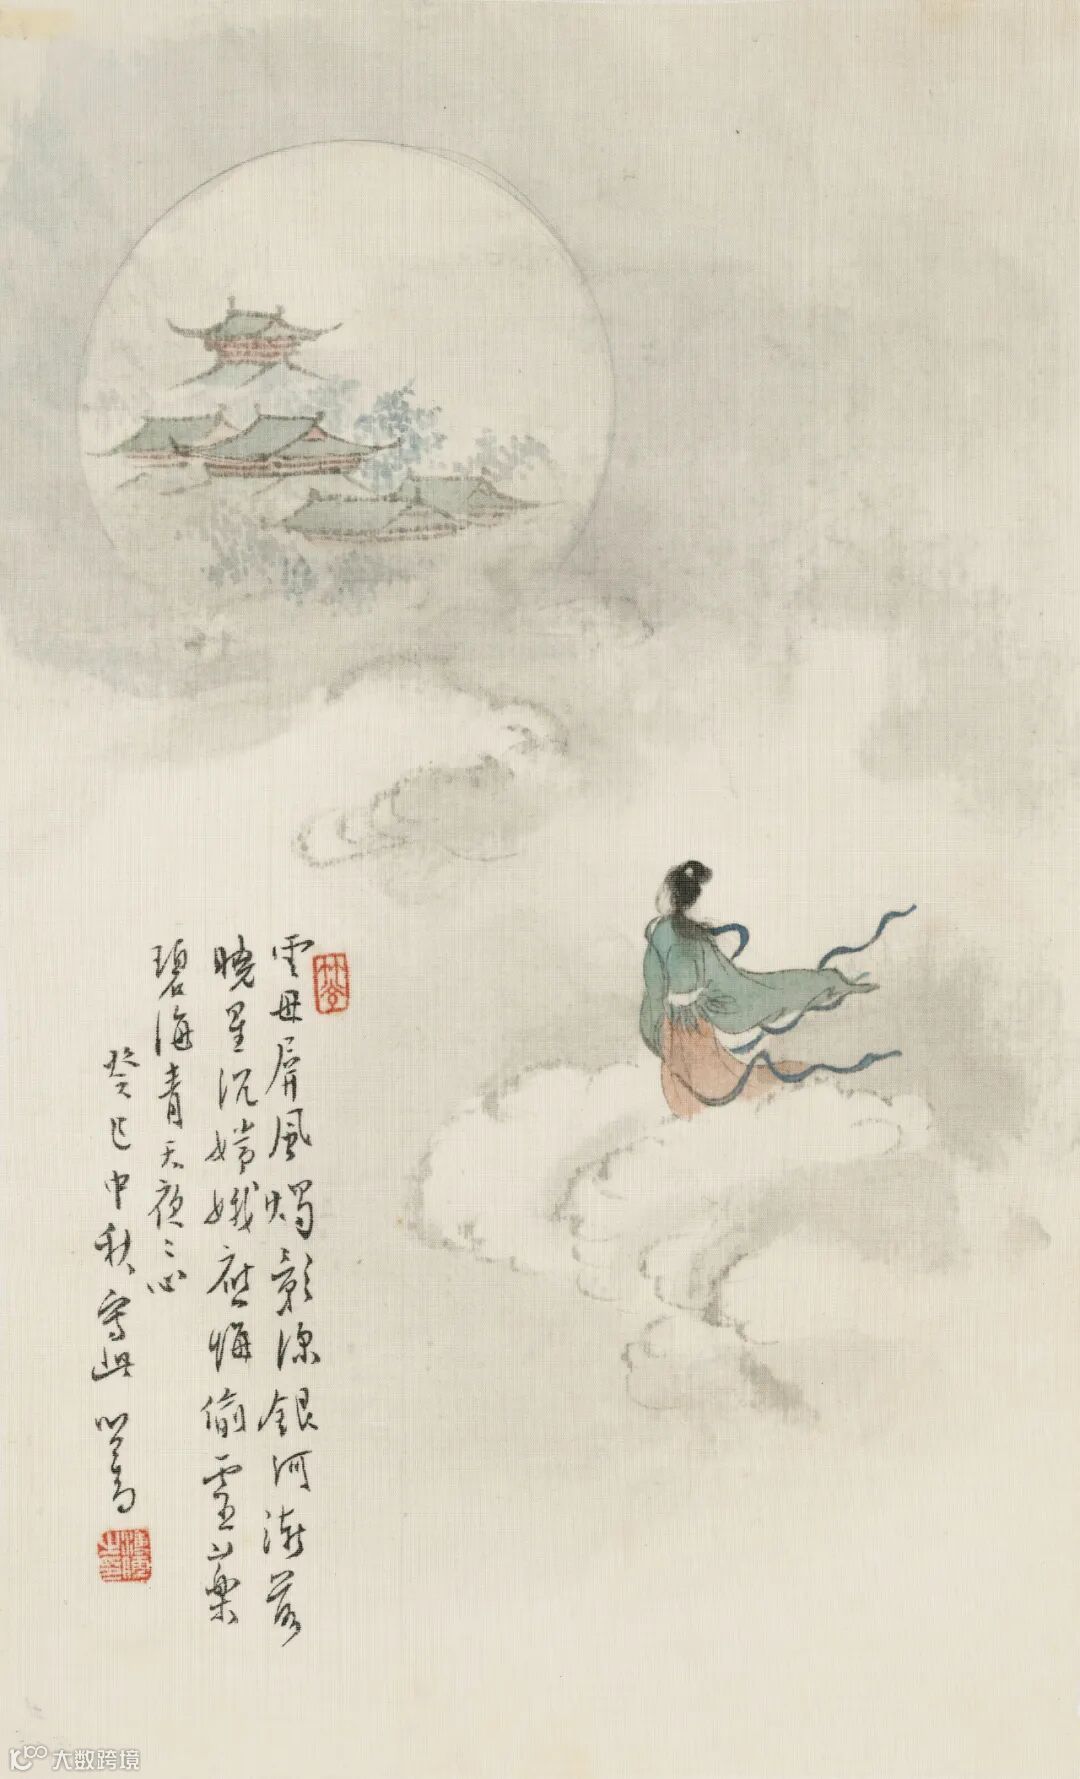 雲母屏風燭影深銀河漸落
曉星沉嫦娥應悔偷靈藥
碧海青天夜〻心
癸巳中秋寫此 心畬
大数跨境